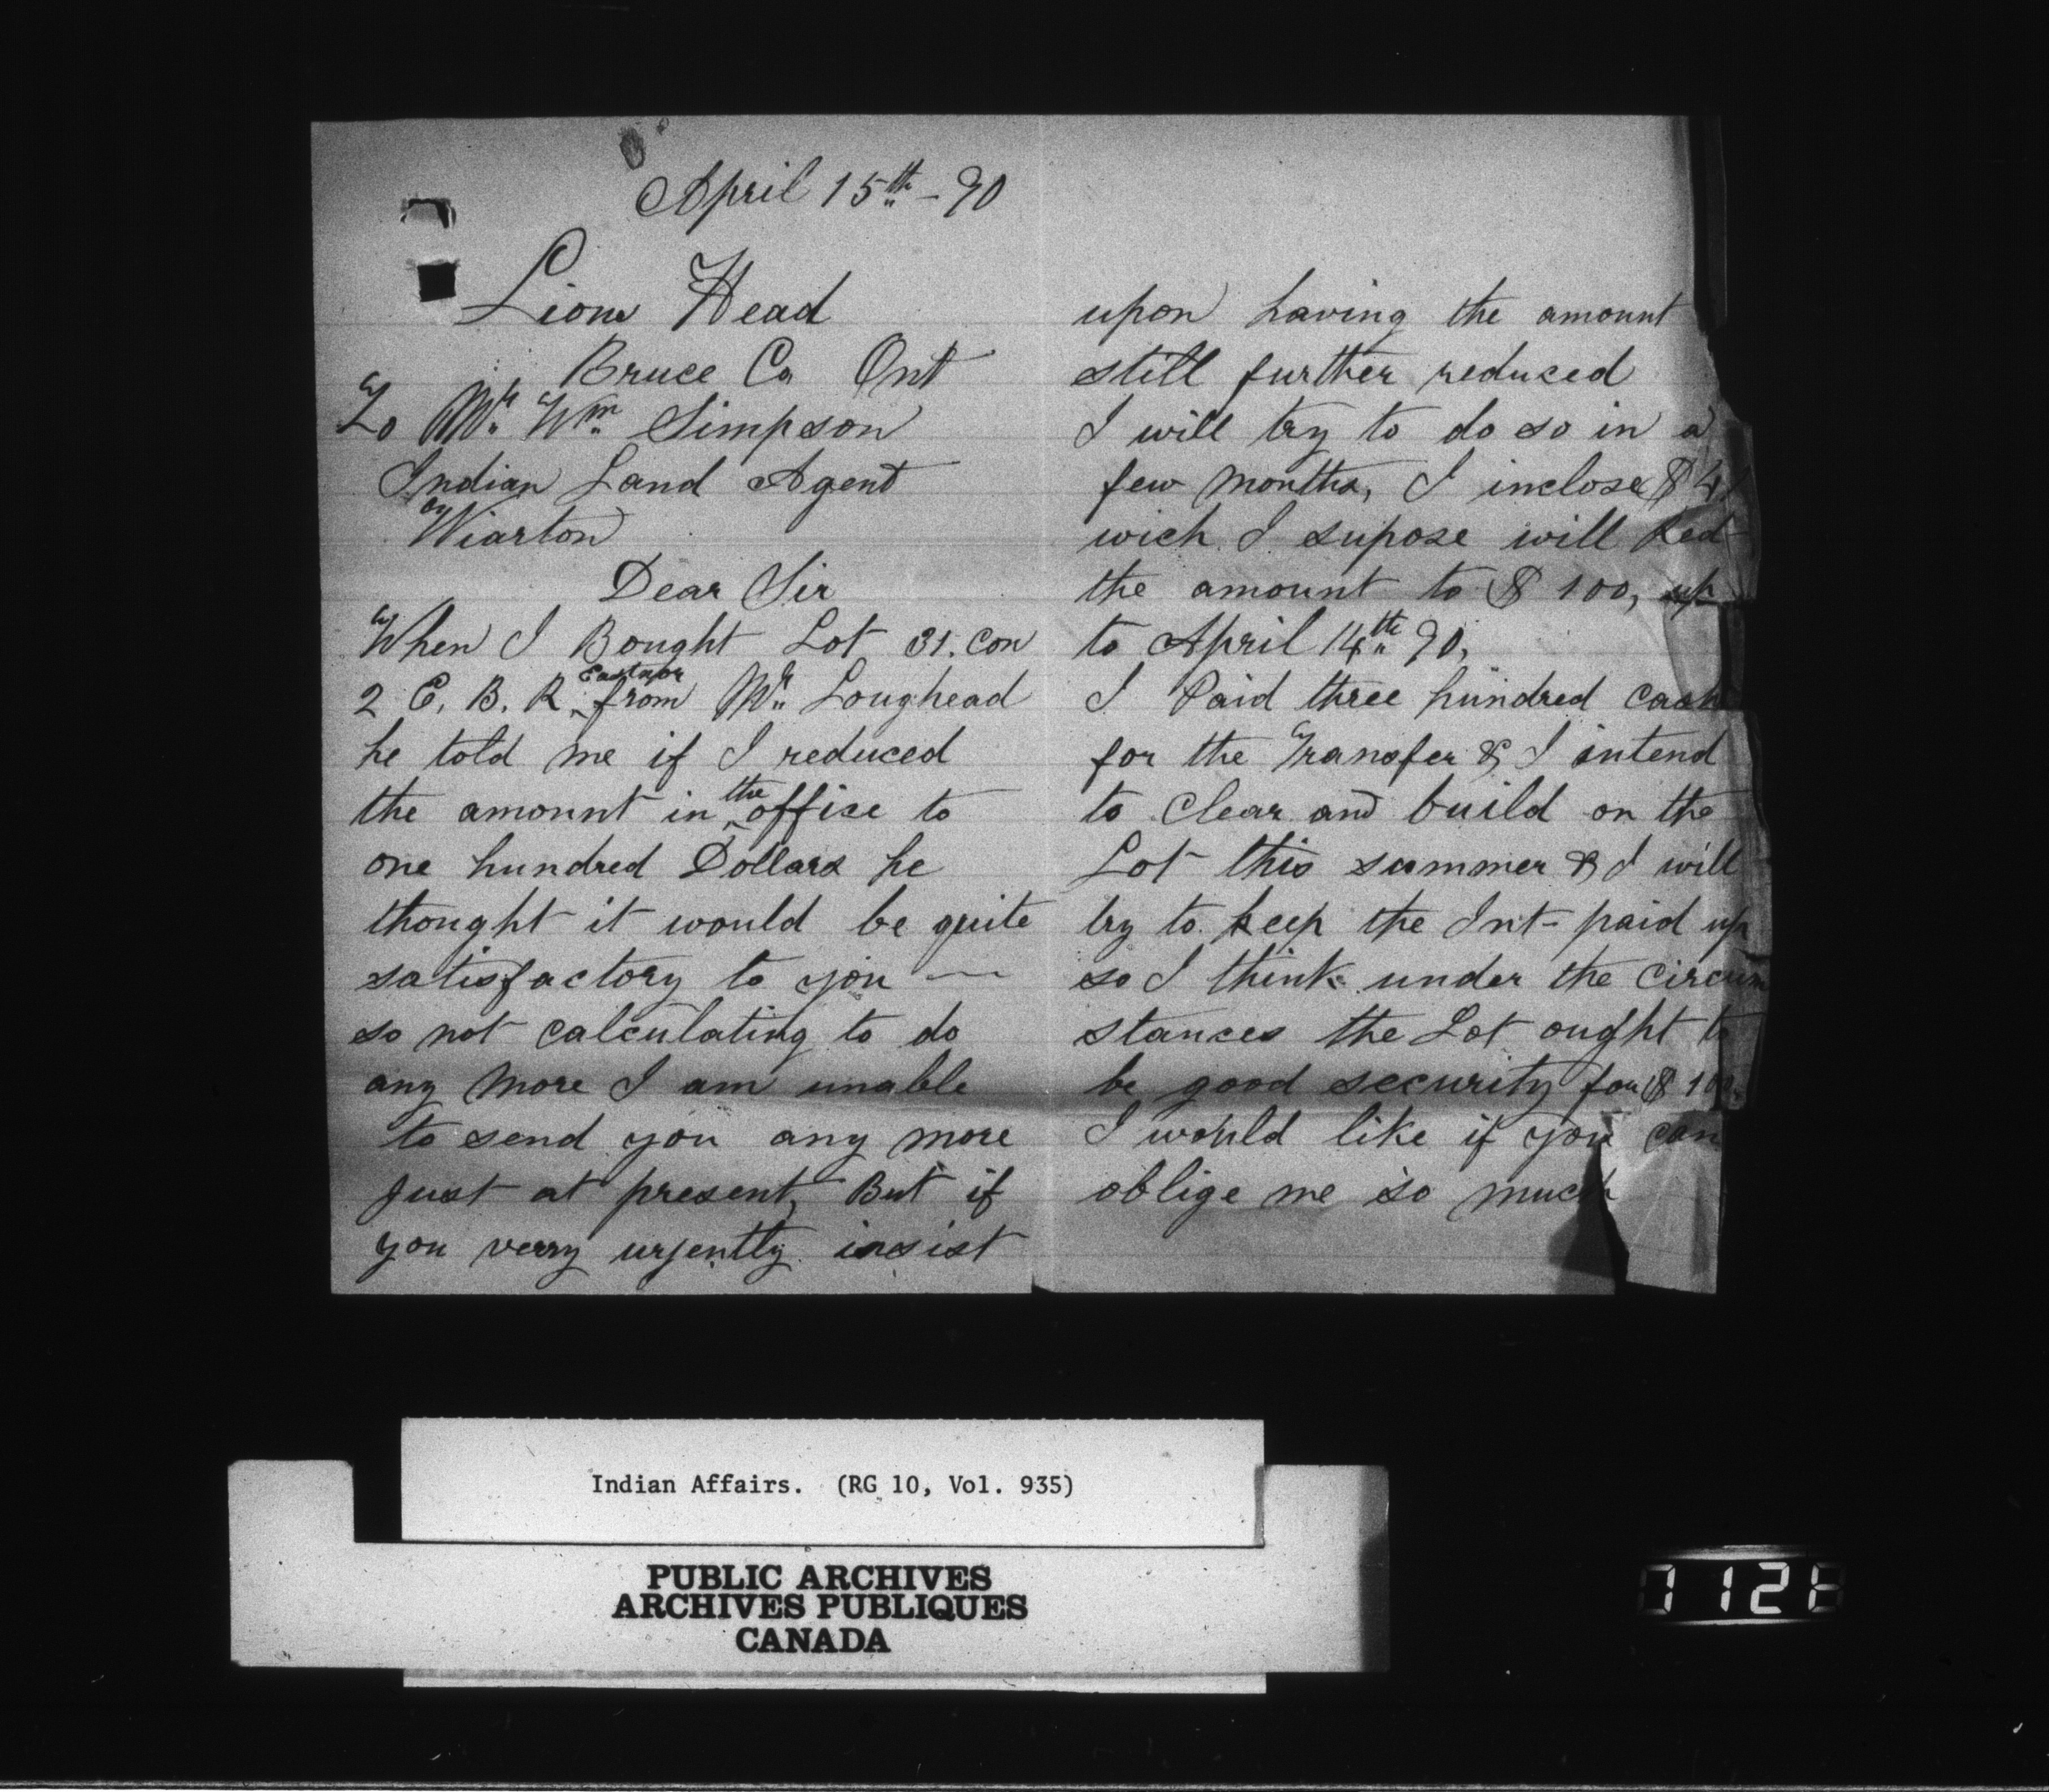 April 15th - 90
Lions Head
Bruce Co Ont
To Mr. Wm. Simpson
Indian Land Agent
Wiarton
Dear Sir
When I Bought Lot 31. Con
2 E. B. R. Eastnor from Mr. Loughead
he told me if I reduced
the amount in the offise to
one hundred Dollars he
thought it would be quite
satisfactory to you —
so not calculating to do
any more I am unable
to send you any more
just at present, But if
you verry urjently insist
upon having the amount
still further reduced
I will try to do so in a
few months, I inclose $
wich I supose will Red
the amount to $100, up
to April 14th 90,
I Paid three hundred cash
for the Transfer & I intend
to clear and build on the
Lot this summer & I will
try to keep the Int- paid up
so I think under the circum
stances the Lot ought to
be good security for $100,
I would like if you can
oblige me so much
Indian Affairs. (RG 10, Vol. 935)
PUBLIC ARCHIVES
ARCHIVES PUBLIQUES
CANADA